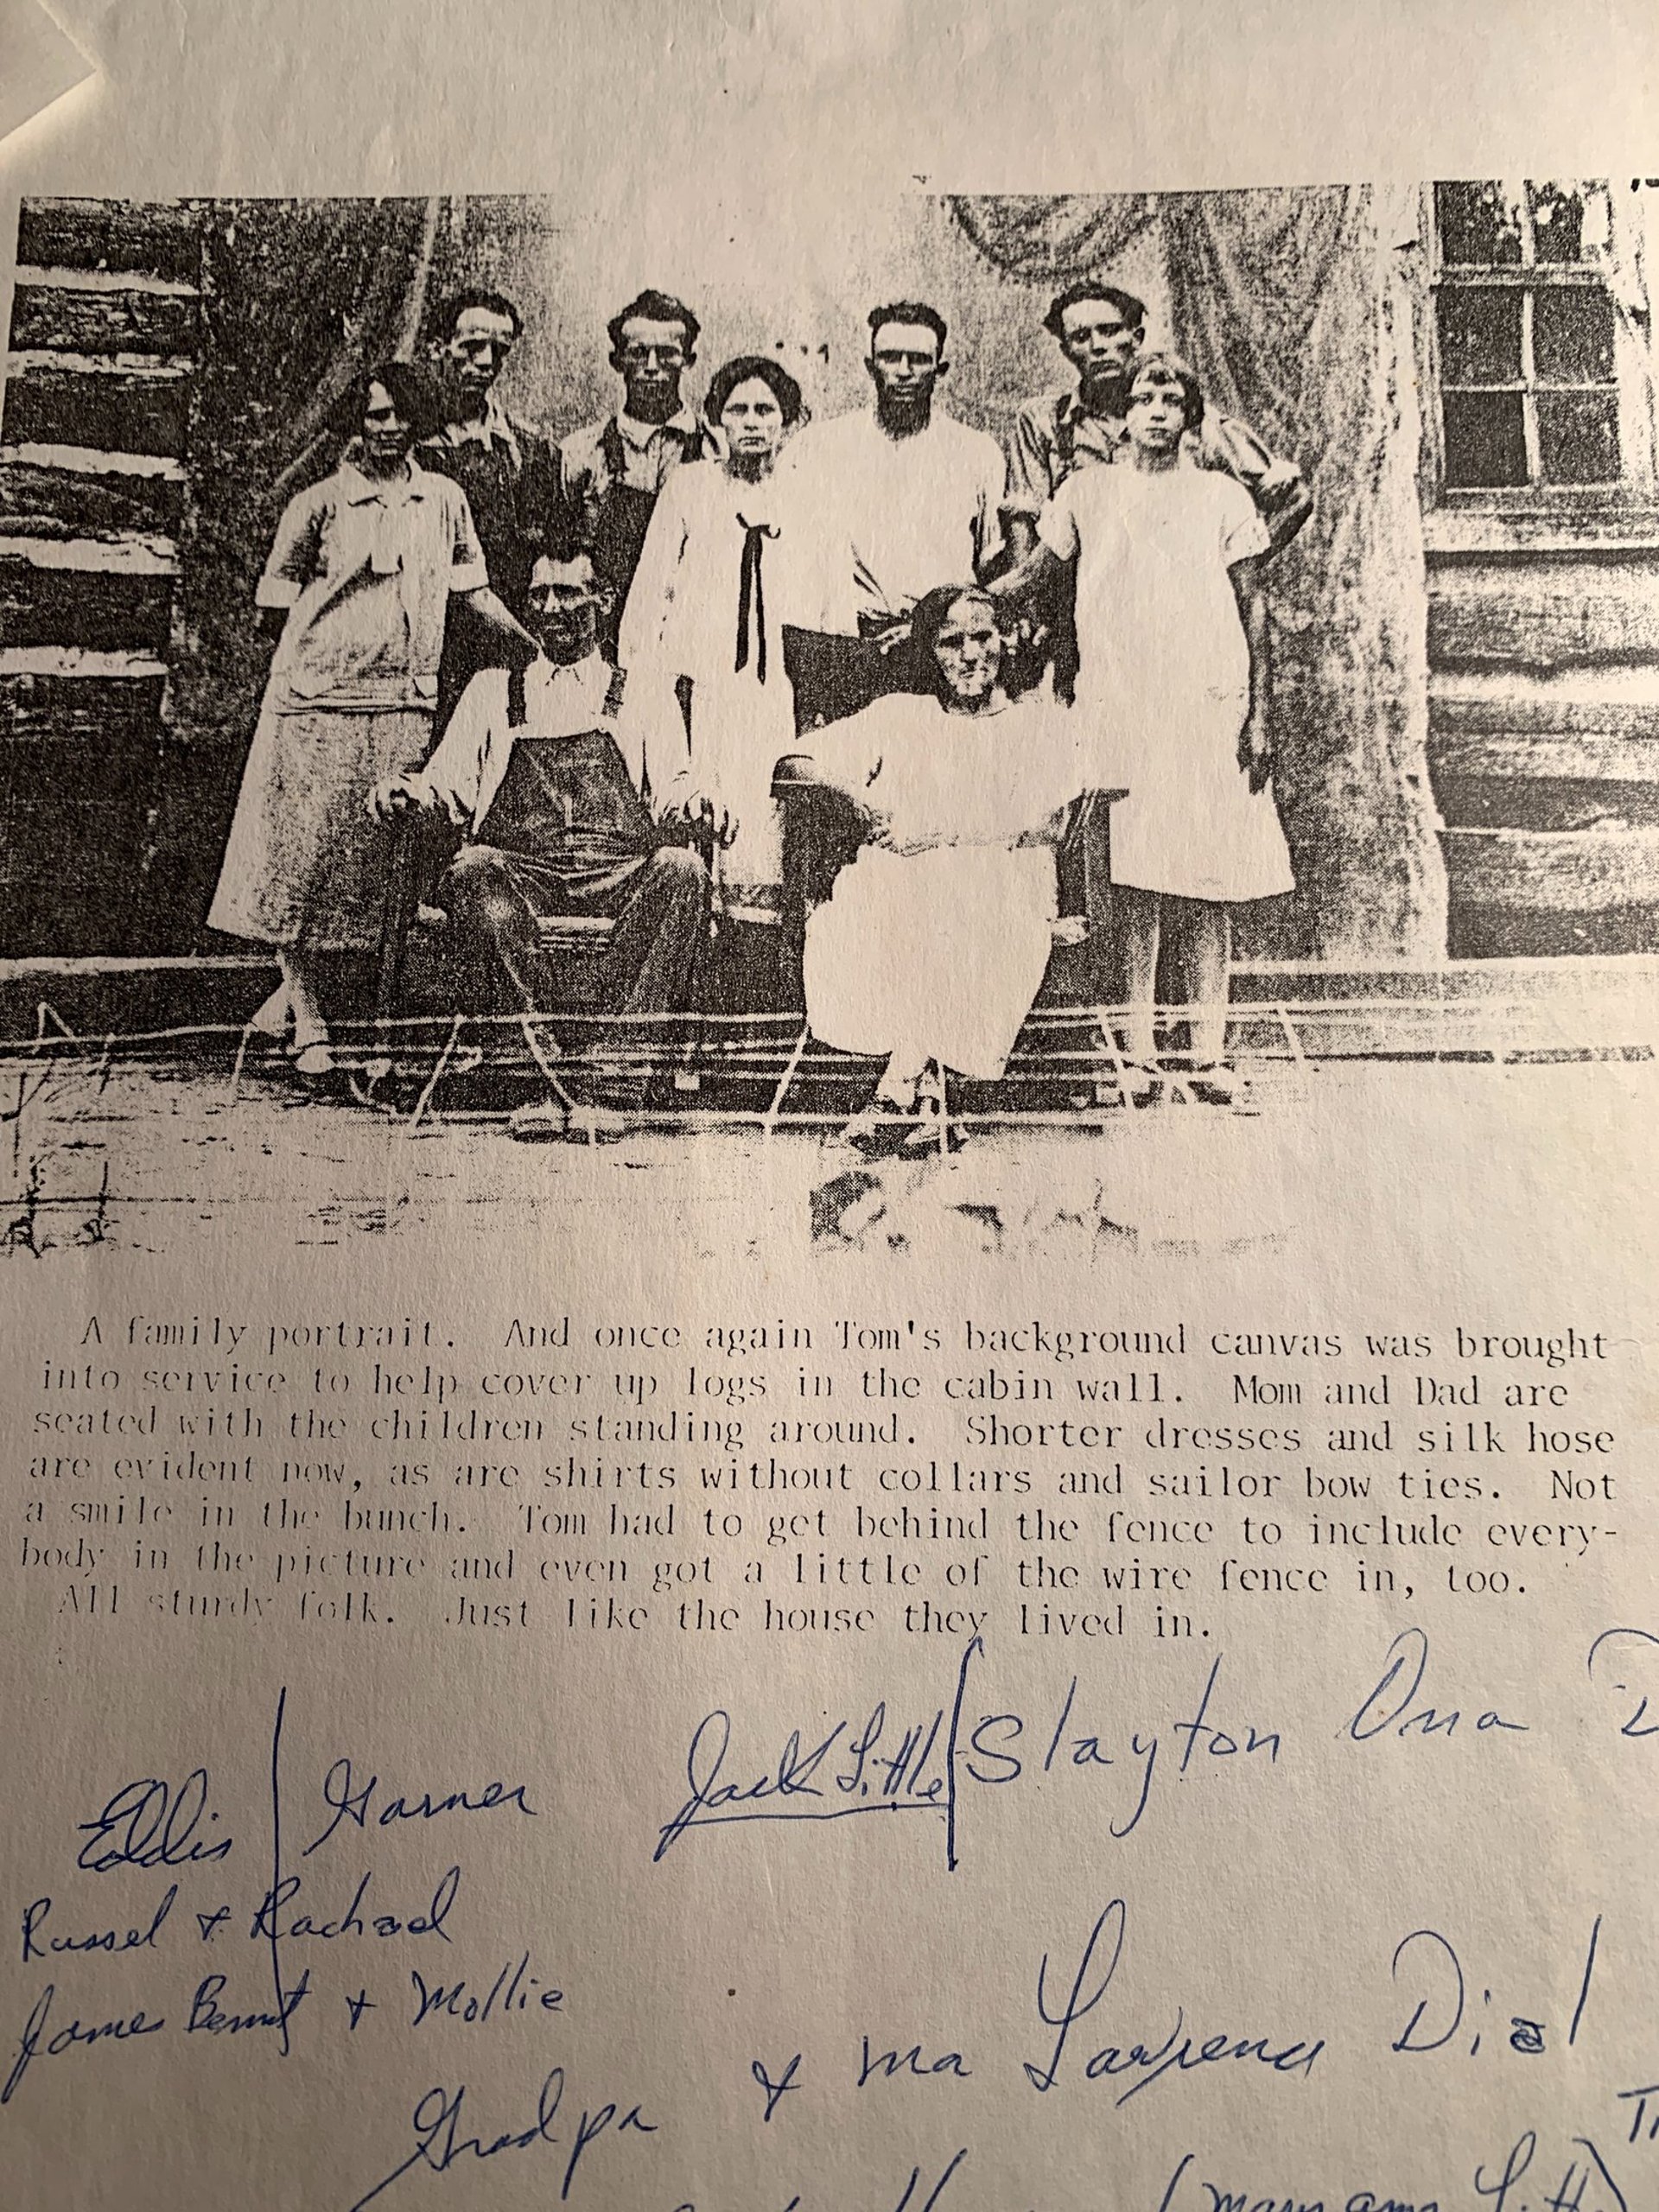 A family portrait. And once again Tom's background canvas was brought
into service to help cover up logs in the cabin wall. Mom and Dad are
seated with the children standing around. Shorter dresses and silk hose
are evident now, as are shirts without collars and sailor bow ties. Not
a smile in the bunch. Tom had to get behind the fence to include every-
body in the picture and even got a little of the wire fence in, too.
All sturdy folk. Just like the house they lived in.
Eddis / Garner Jack Little / Slayton Ona
Russel + Rachael
James Bennt + Mollie
Gradpa + ma Dial